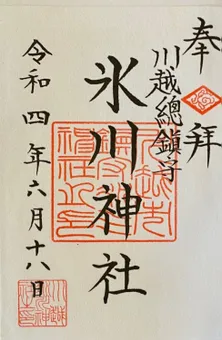 奉拝
川越總鎮守
氷川神社
令和四年六月十八日